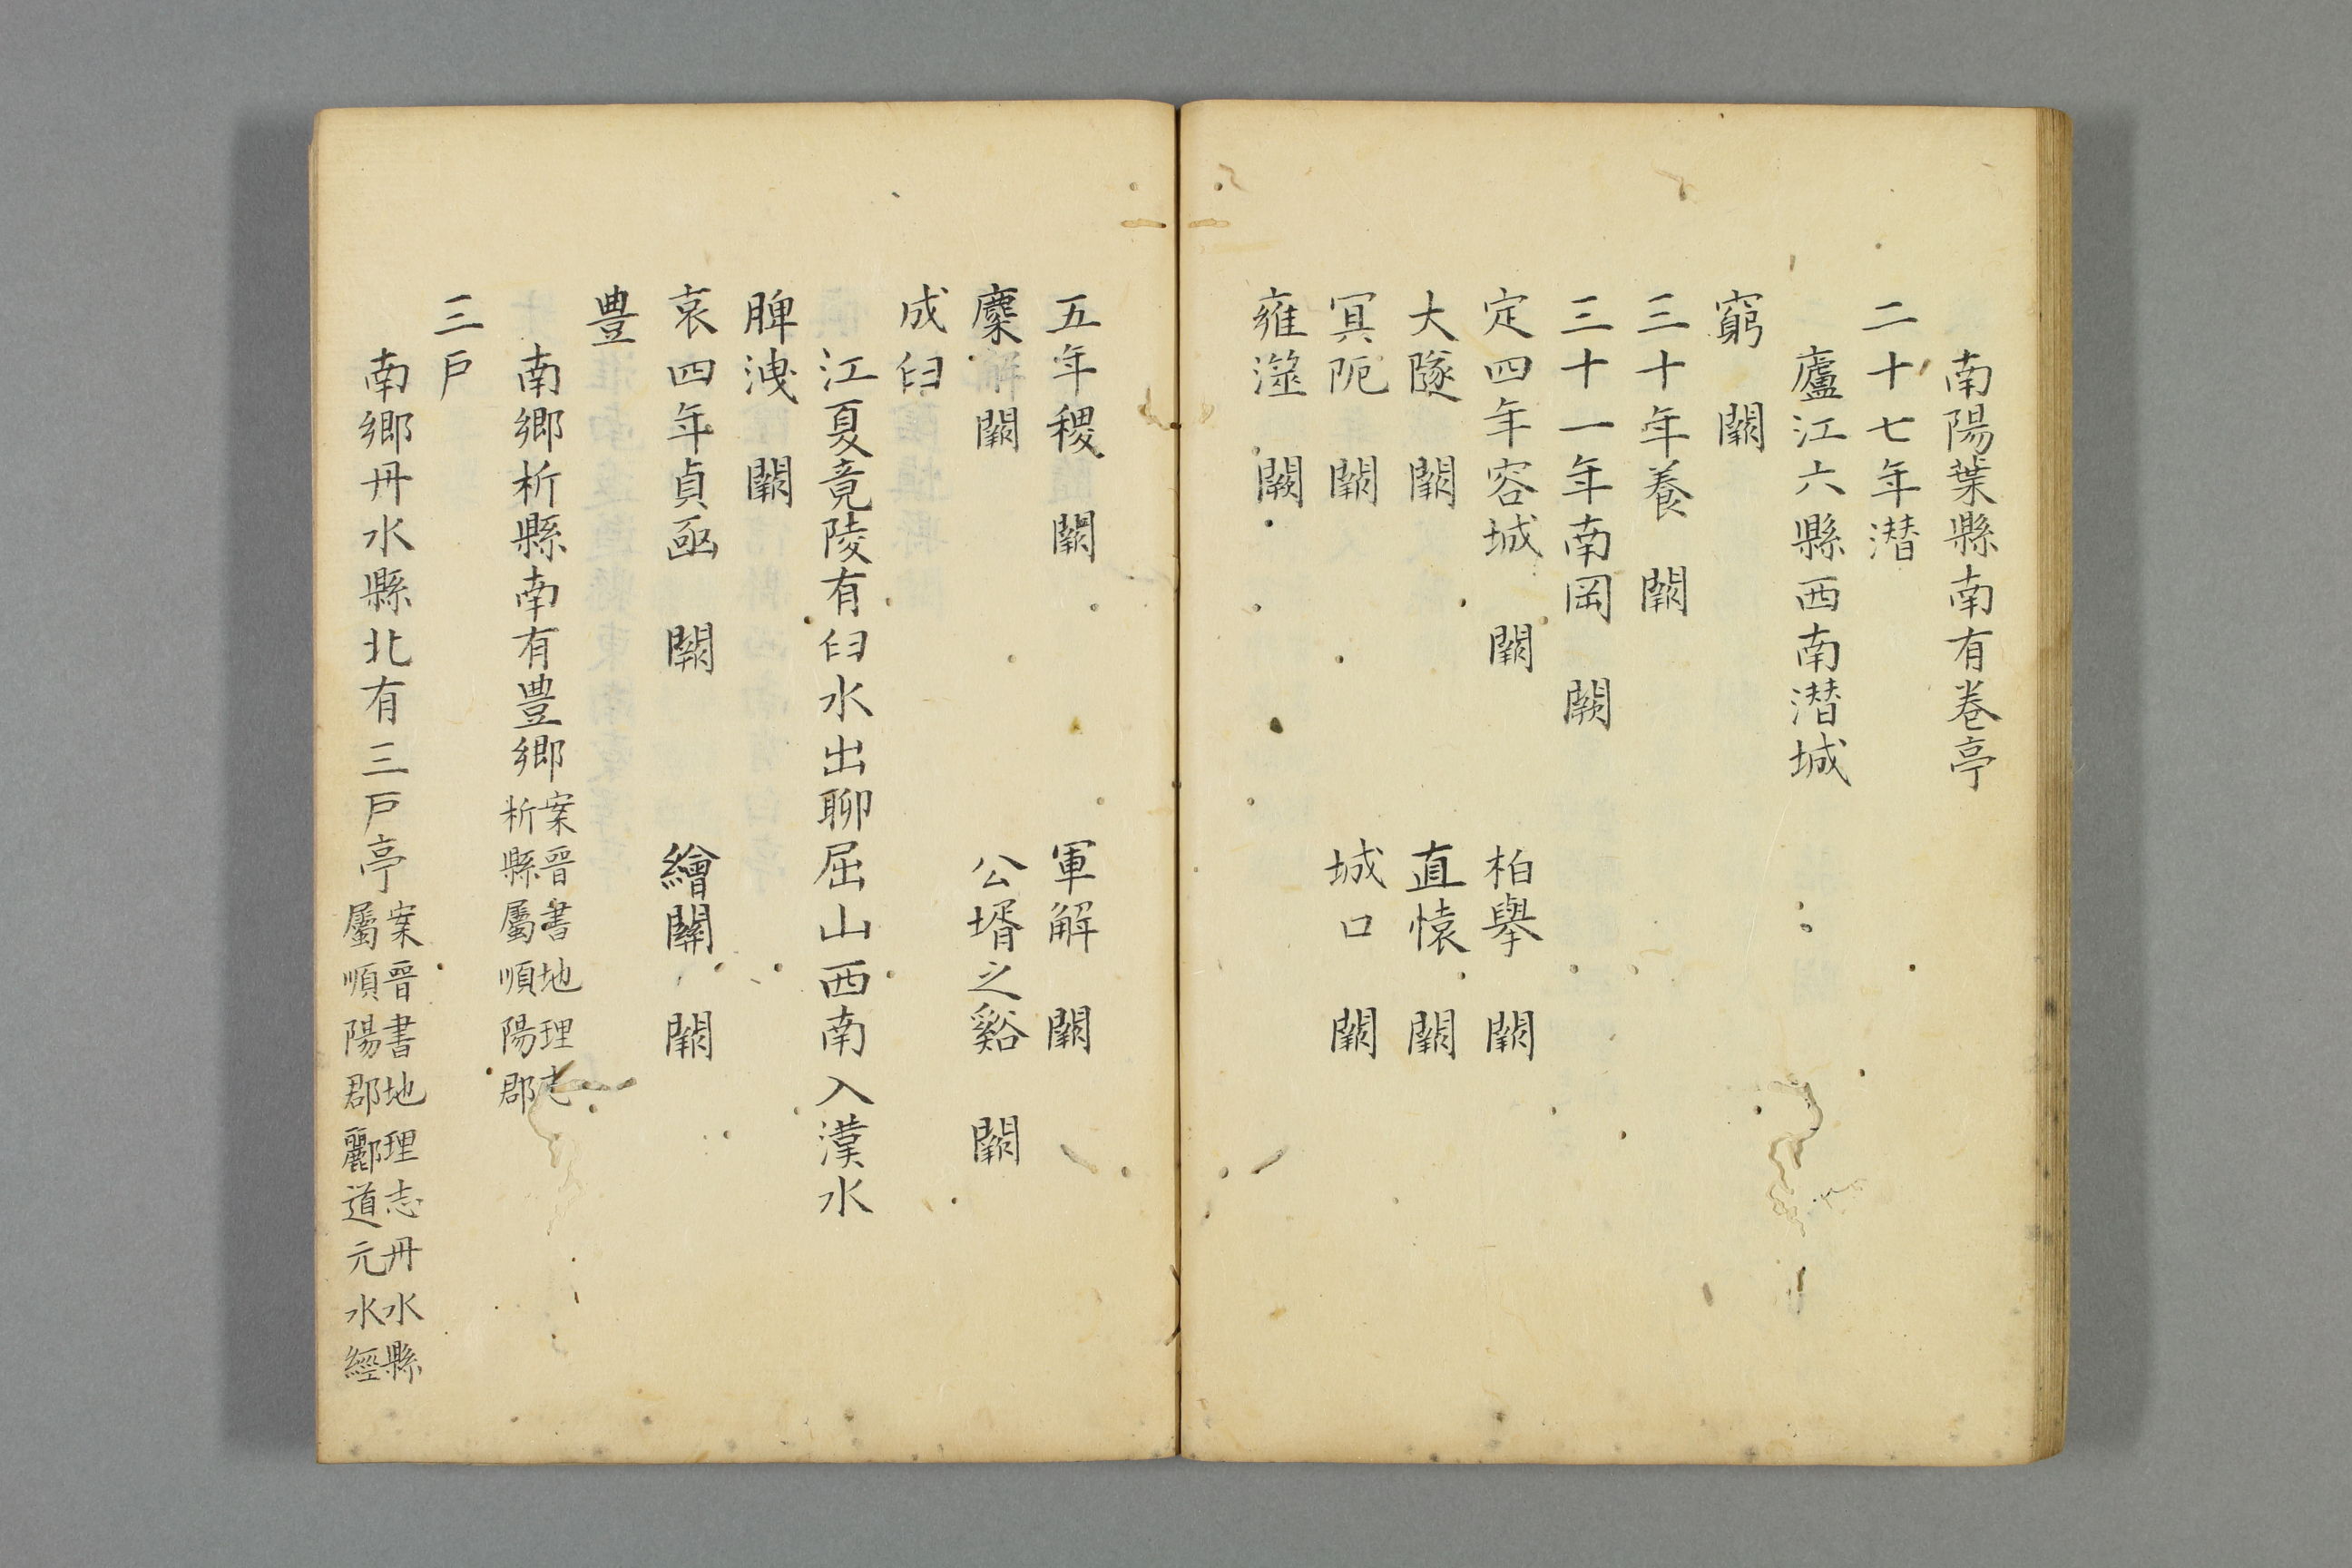 南陽葉縣南有卷亭
二十七年潛
廬江六縣西南潛城
窮 闕
三十年養 闕
三十一年南岡 闕
定四年容城 闕 柏舉 闕
大隧 闕 直懷 闕
冥阨 闕 城口 闕
雍澨 闕
五年稷 闕 軍解 闕
麇 闕 公壻之谿 闕
成臼
江夏竟陵有臼水出聊屈山西南入漢水
脾洩 闕
哀四年貞函 闕 繒關 闕
豊
南鄉析縣南有豊鄉案晉書地理志
析縣屬順陽郡
三戶
南鄉丹水縣北有三戶亭案晉書地理志丹水縣
屬順陽郡酈道元水經